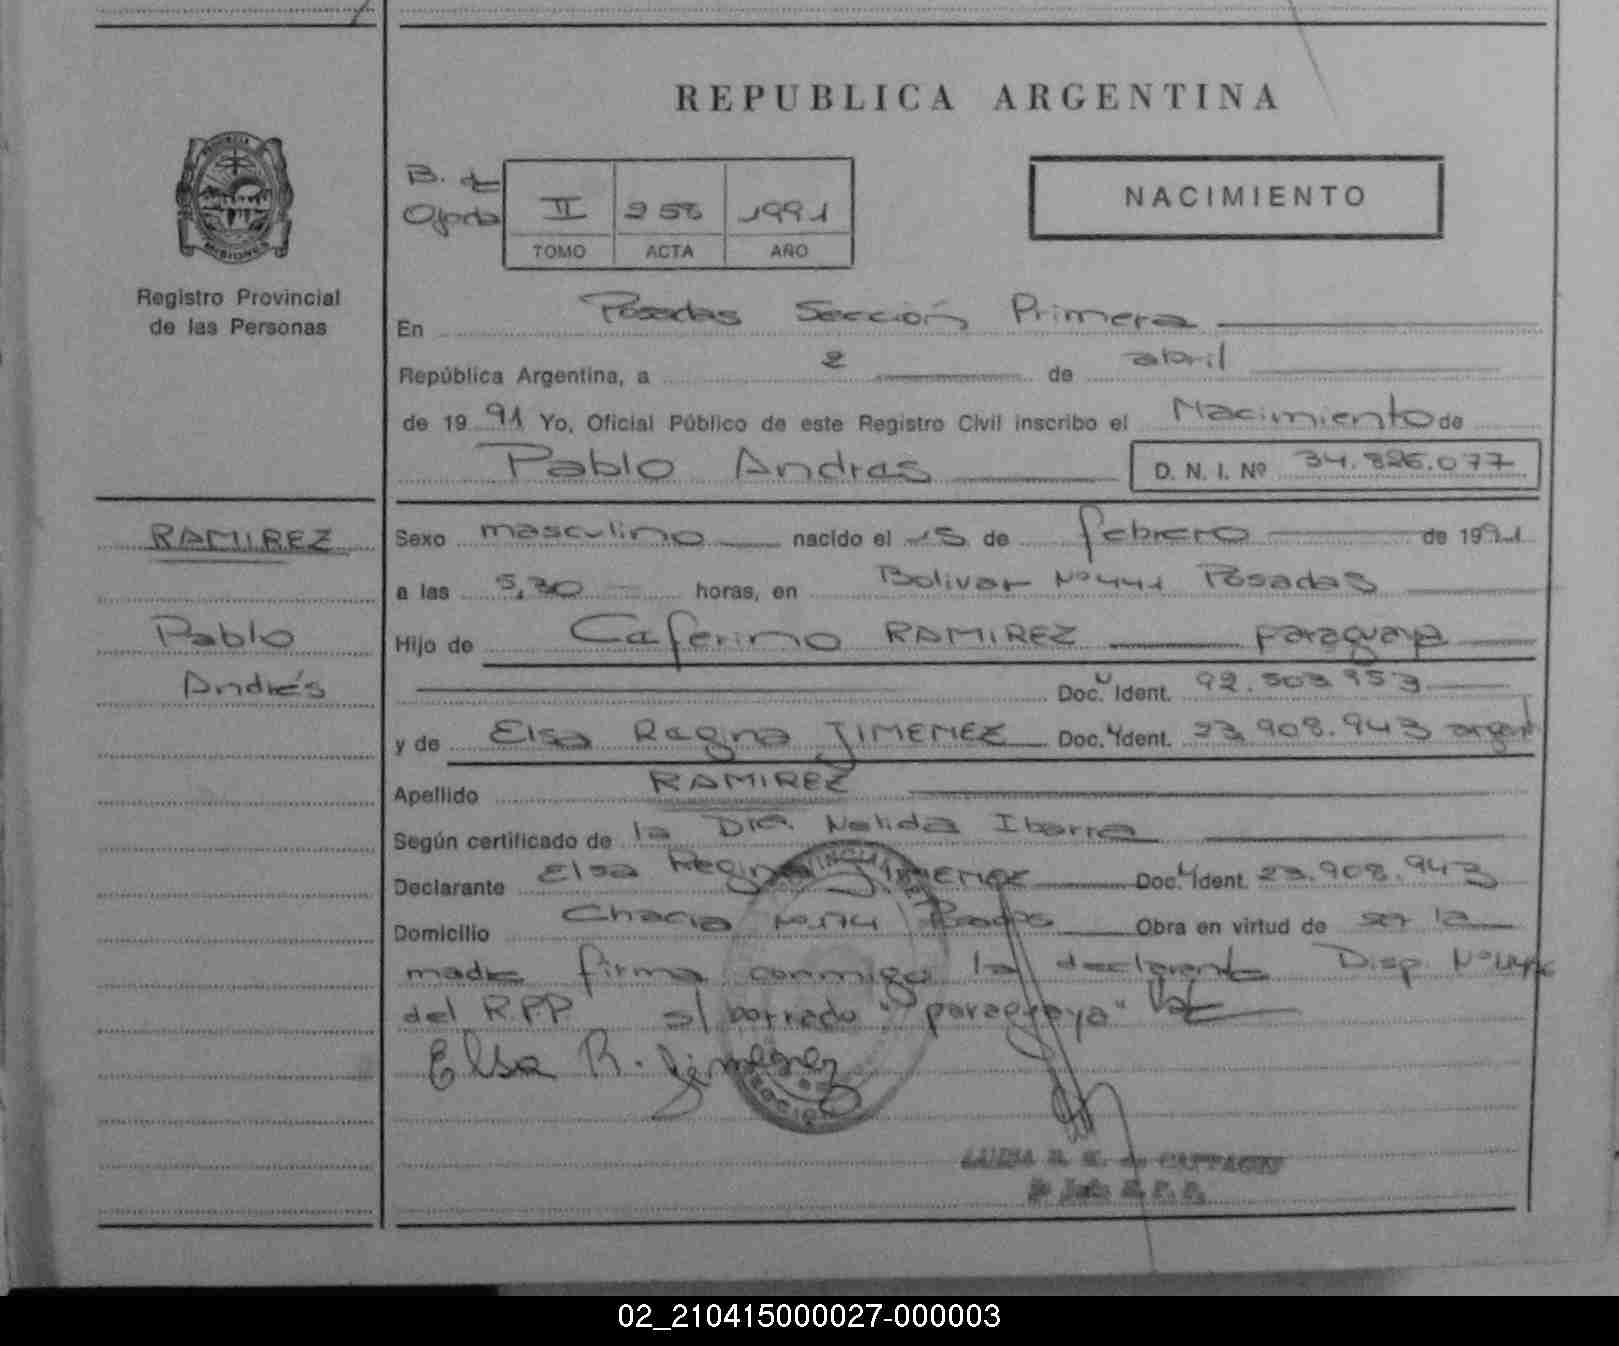 REPUBLICA ARGENTINA
B. de Ojeda
II 258 1991
TOMO ACTA AÑO
NACIMIENTO
PROVINCIA
MISIONES
Registro Provincial
de las Personas
En Posadas Sección Primera
República Argentina, a 2 de abril
de 19 91 Yo, Oficial Público de este Registro Civil inscribo el Nacimiento de
Pablo Andras D. N. I. Nº 34.826.077
RAMIREZ
Pablo
Andrés
Sexo masculino nacido el 15 de febrero de 1991
a las 5,30 horas, en Bolivar Nº 441 Posadas
Hijo de Caferino RAMIREZ paraguaya
Doc. Ident. 92.503.953
y de Elsa Regina JIMENEZ Doc. Ident. 23.908.943 argent
Apellido RAMIREZ
Según certificado de la Dra. Nelida Ibarra
Declarante Elsa Regina JIMENEZ Doc. Ident. 23.908.943
Domicilio Nº 174 Posadas Obra en virtud de ser la
madre firma conmigo la declarante Disp. Nº
del RPP s/ borrado "paraguaya" Vale
Elsa R. Jimenez
02_210415000027-000003